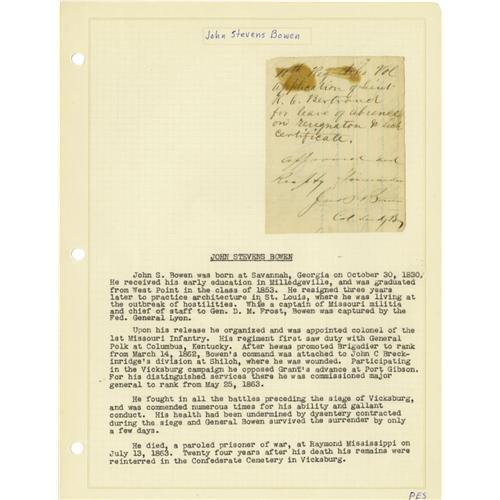 John Stevens Bowen
10th Reg Ark Vol
Application of Lieut
R. C. Bertrand
for leave of absence
on resignation & sick
certificate.
Approved and
Respfy forwarded
Jno S Bowen
Col comdg Brg
JOHN STEVENS BOWEN
John S. Bowen was born at Savannah, Georgia on October 30, 1830.
He received his early education in Milledgeville, and was graduated
from West Point in the class of 1853. He resigned three years
later to practice architecture in St. Louis, where he was living at
the outbreak of hostilities. While a captain of Missouri militia
and chief of staff to Gen. D. M. Frost, Bowen was captured by the
Fed. General Lyon.
Upon his release he organized and was appointed colonel of the
1st Missouri Infantry. His regiment first saw duty with General
Polk at Columbus, Kentucky. After hewas promoted Brigadier to rank
from March 14, 1862, Bowen's command was attached to John C Breck-
inridge's division at Shiloh, where he was wounded. Participating
in the Vicksburg campaign he opposed Grant's advance at Port Gibson.
For his distinguished services there he was commissioned major
general to rank from May 25, 1863.
He fought in all the battles preceding the siege of Vicksburg,
and was commended numerous times for his ability and gallant
conduct. His health had been undermined by dysentery contracted
during the siege and General Bowen survived the surrender by only
a few days.
He died, a paroled prisoner of war, at Raymond Mississippi on
July 13, 1863. Twenty four years after his death his remains were
reinterred in the Confederate Cemetery in Vicksburg.
PES